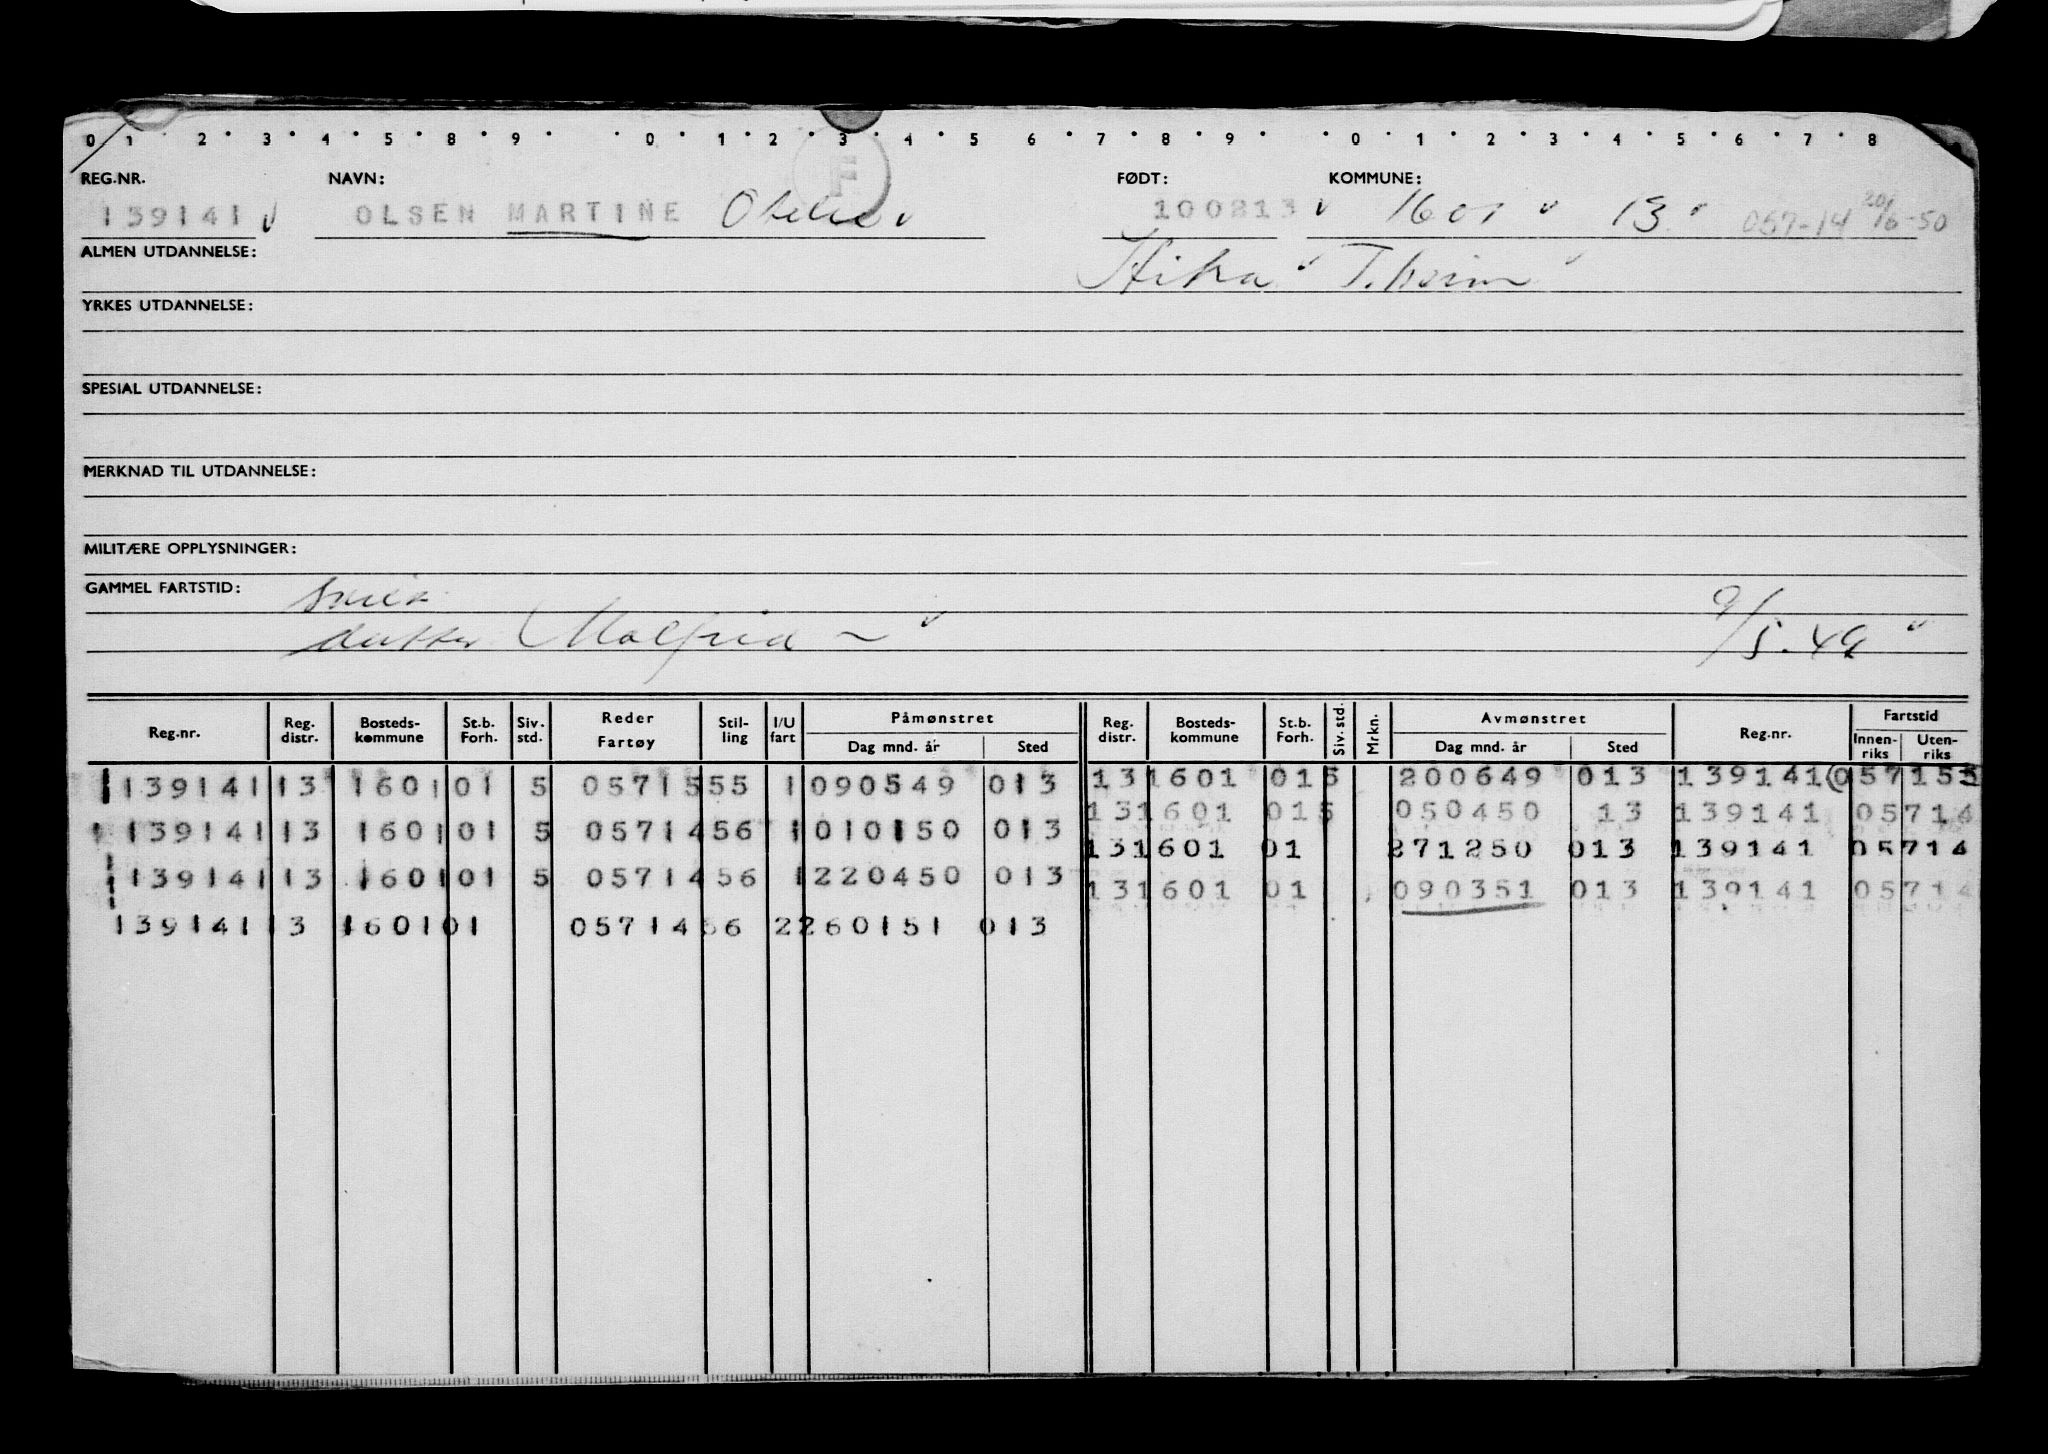 0 1 2 3 4 5 8 9 0 1 2 3 4 5 6 7 8 9 0 1 2 3 4 5 6 7 8
REG.NR. NAVN: F FØDT: KOMMUNE:
139141 OLSEN MARTINE 100213 1601 13 057-14 16-50
ALMEN UTDANNELSE: Hitra T.heim
YRKES UTDANNELSE:
SPESIAL UTDANNELSE:
MERKNAD TIL UTDANNELSE:
MILITÆRE OPPLYSNINGER:
GAMMEL FARTSTID:
datter Malfrid 9/5.49
Reg.nr. Reg. distr. Bosteds-kommune St.b. Forh. Siv. std. Reder Fartøy Stil-ling I/U fart Påmønstret Dag mnd. år Sted Reg. distr. Bosteds-kommune St.b. Forh. Siv. std. Mrkn. Avmønstret Dag mnd. år Sted Reg.nr. Fartstid Innen-riks Uten-riks
139141 13 1601 01 5 05715 55 1 090549 013 13 1601 01 5 200649 013 139141 057155
13 1601 01 5 050450 13 139141 05714
139141 13 1601 01 5 05714 56 1 010150 013
13 1601 01 271250 013 139141 05714
139141 13 1601 01 5 05714 56 1 220450 013
13 1601 01 090351 013 139141 05714
139141 13 1601 01 05714 56 2 260151 013